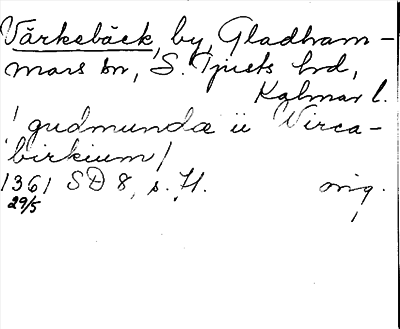 Värkebäck, by, Gladham-
mars sn, S. Tjusts hd,
Kalmar l.
/gudmundæ ii Virca-
birkium/
1361 SD 8, s. 71. orig.
29/5